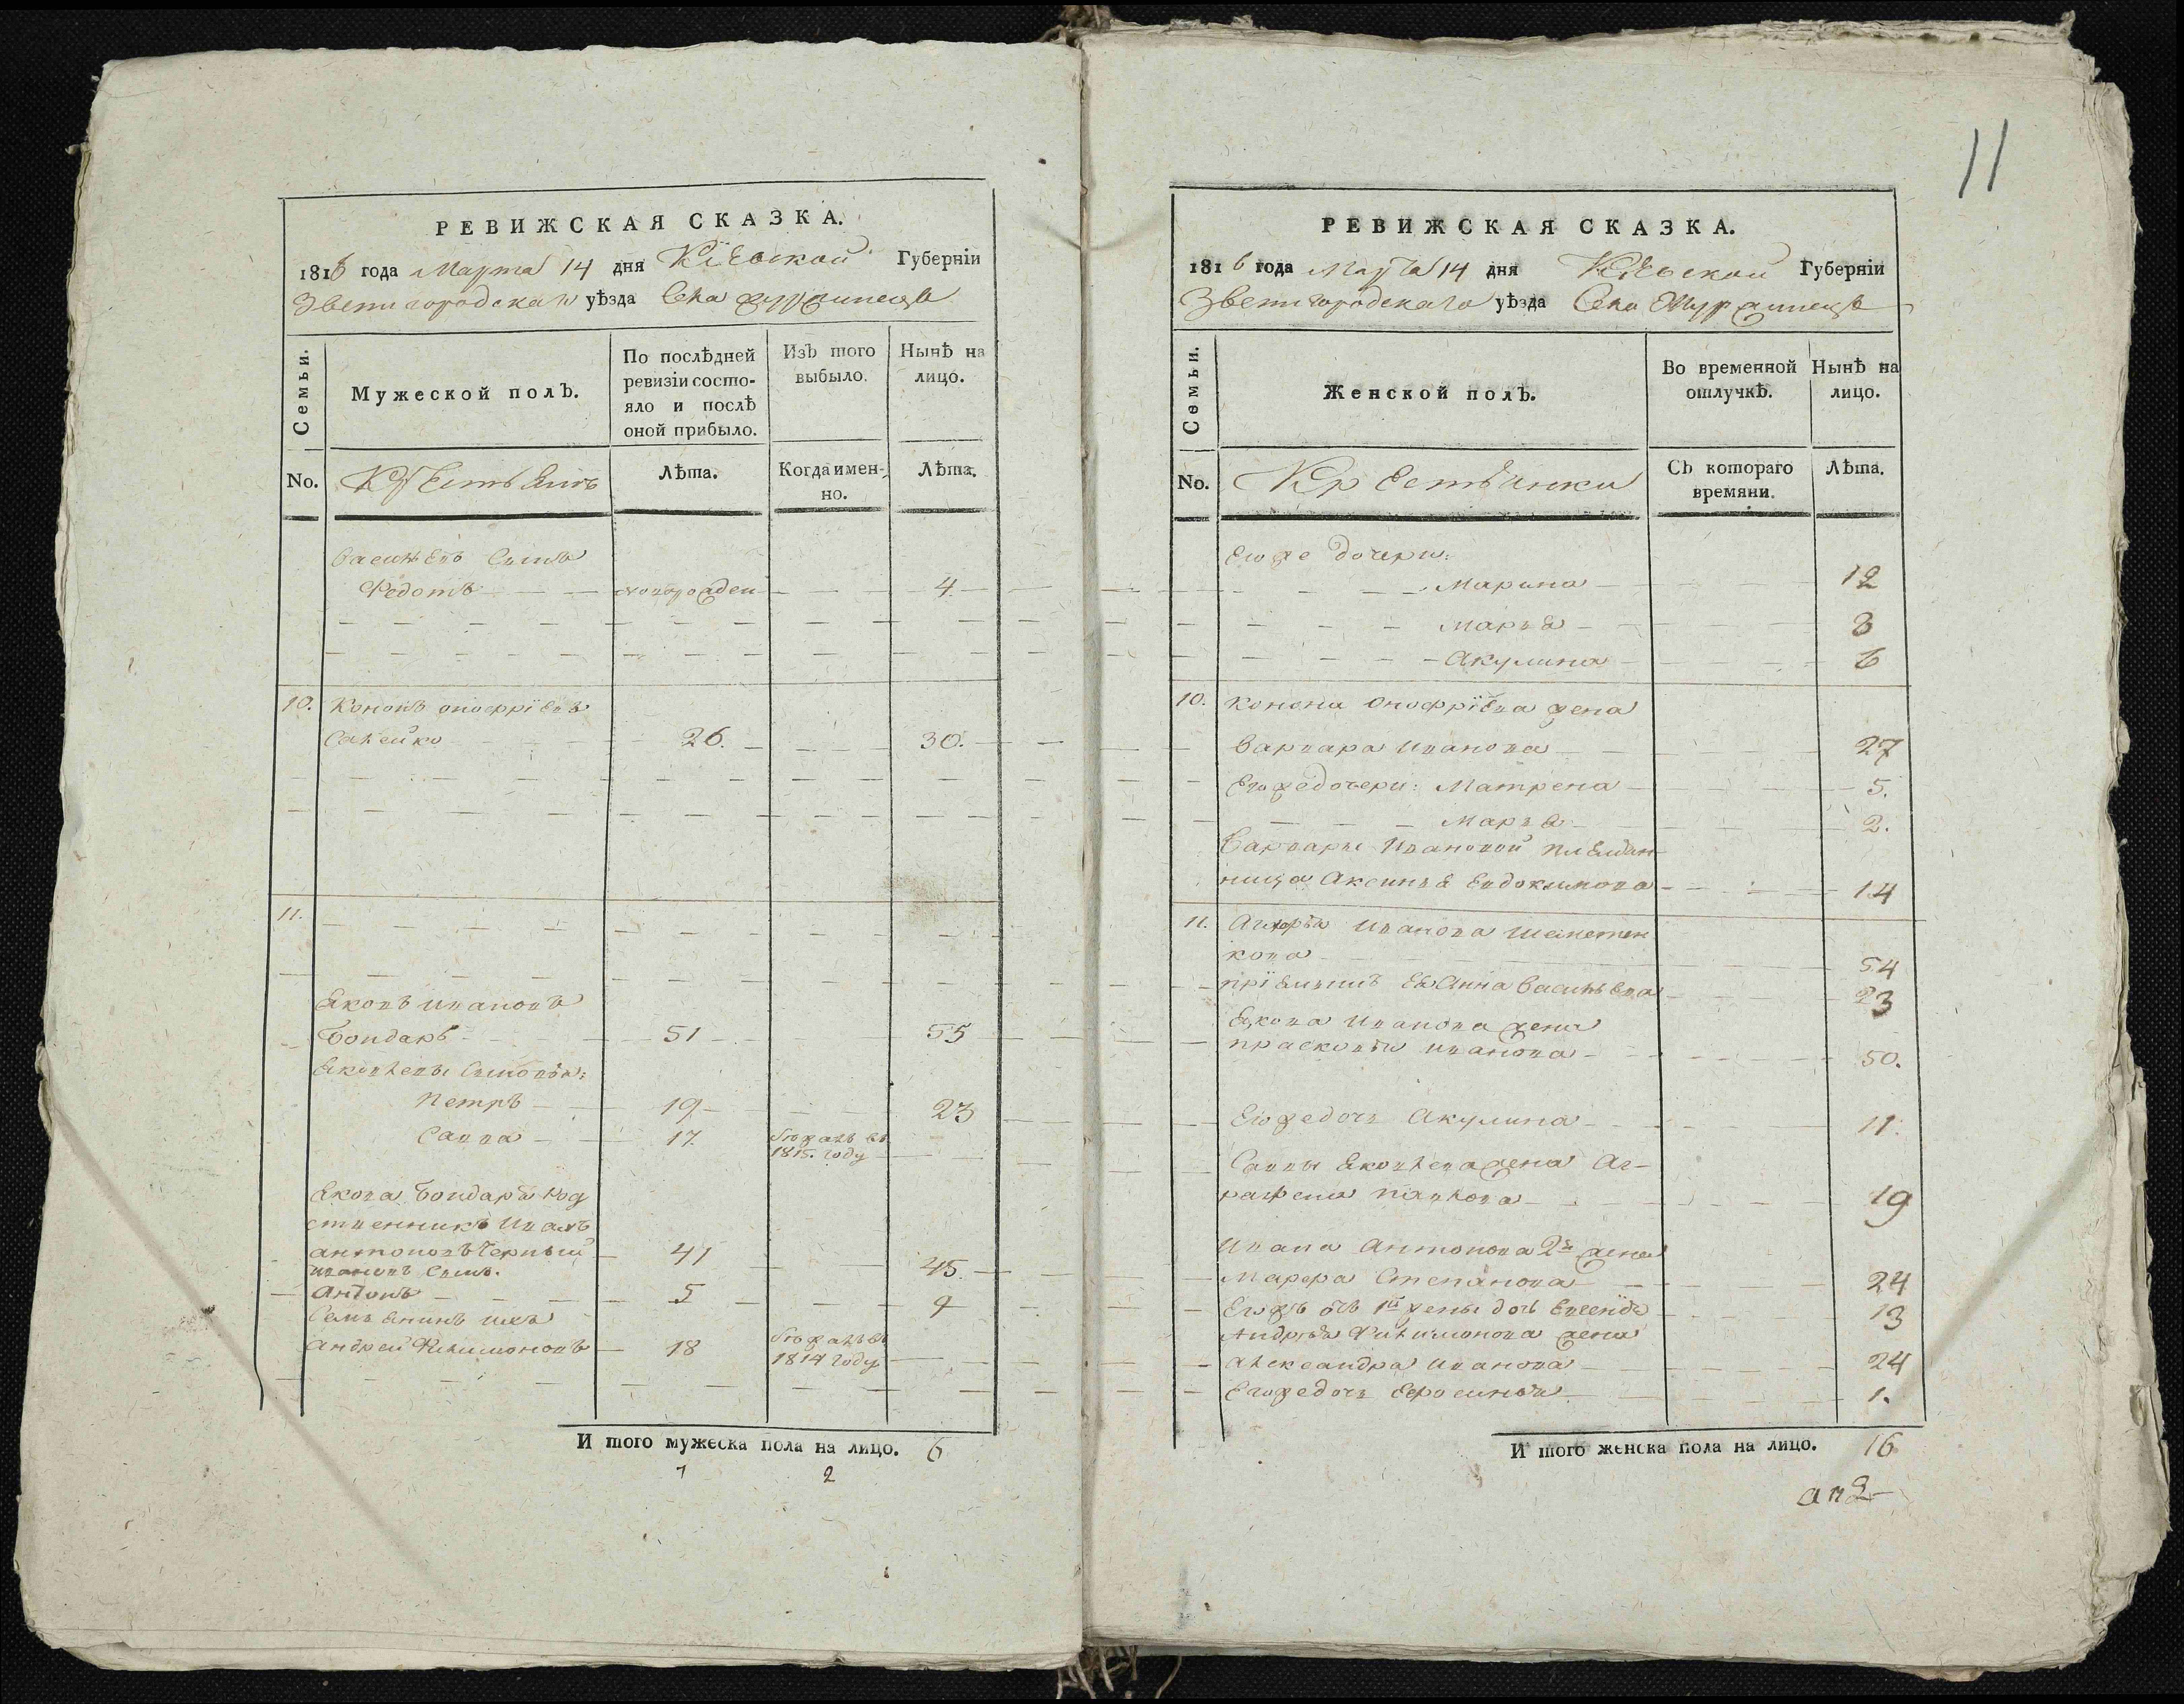 РЕВИЖСКАЯ СКАЗКА.
1816 года Марта 14 дня Кіевской Губерніи
Звенигородскаго уѣзда Села Журжинецъ
Семьи.
Мужеской полъ.
По послѣдней ревизіи состояло и послѣ оной прибыло.
Изъ того выбыло.
Нынѣ на лицо.
No.
Крестьянъ
Лѣта.
Когда именно.
Лѣта.
Васильевъ Сынъ
Федотъ новорожден 4
10. Кононъ Онофріевъ
26. 30.
11.
Яковъ Ивановъ
Бондарь 51 55
Яковлевы Сыновья:
Петръ 19 23
Савва 17. бѣжалъ въ 1815. году
Якова Бондаря род
ственникъ Иванъ
Антоновъ Черный 41 45.
Ивановъ Сынъ.
Антонъ 5 9
Семьянинъ ихъ
Андрей Филимоновъ 18 бѣжалъ въ 1814 году
И того мужеска пола на лицо. 6
1 2
11
РЕВИЖСКАЯ СКАЗКА.
1816 года Марта 14 дня Кіевской Губерніи
Звенигородскаго уѣзда Села Журжинецъ
Семьи.
Женской полъ.
Во временной отлучкѣ.
Нынѣ на лицо.
No.
Крестьянки
Съ котораго времяни.
Лѣта.
Егоже дочери:
Марина 12
Марья 8
Акулина 6
10. Конона Онофріева жена
Варвара Иванова 27
Егоже дочери: Матрена 5.
Марья 2.
Варвары Ивановой племян
ница Аксинья Евдокимова 14
11. Агафья Иванова
кова 54
пріемышъ Ея Анна Васильева 23
Якова Иванова жена
Прасковья Иванова 50.
Егоже дочь Акулина 11.
Саввы Яковлева жена Аг-
рафена Павлова 19
Ивана Антонова 2я жена
Марфа Степанова 24
Егожъ отъ 1й жены дочь 13
Андрея Филимонова жена
Александра Иванова 24
Егоже дочь Ефросинья 1.
И того женска пола на лицо. 16